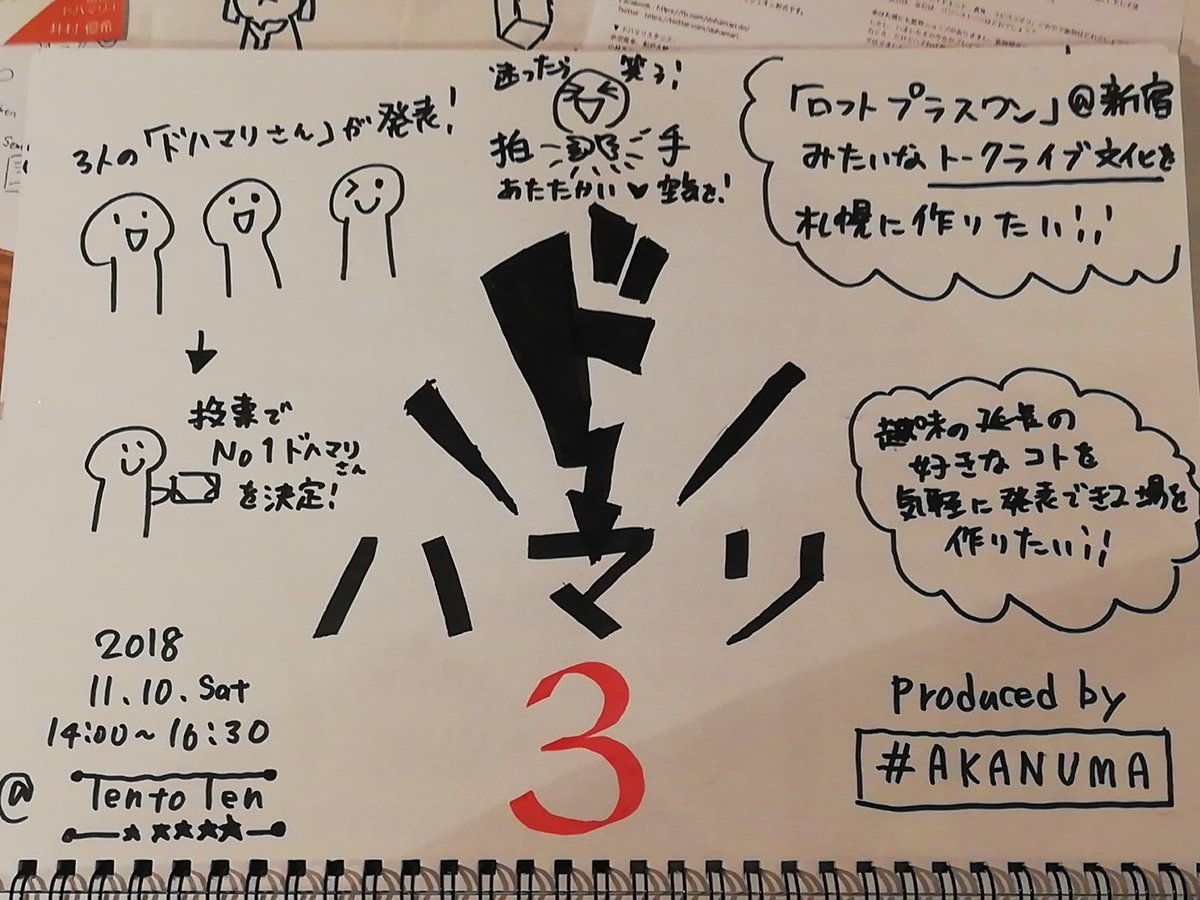 ドハマリ!
井村 優希
3人の「ドハマリさん」が発表!
迷ったら 笑う!
拍手
あたたかい♥空気を!
「ロフトプラスワン」@新宿
みたいなトークライブ文化を
札幌に作りたい!!
投票で
No1ドハマリ
さん
を決定!
ドハマリ
3
趣味の延長の
好きなコトを
気軽に発表できる場を
作りたい!!
2018
11.10.Sat
14:00~16:30
@ Ten to Ten
Produced by
#AKANUMA